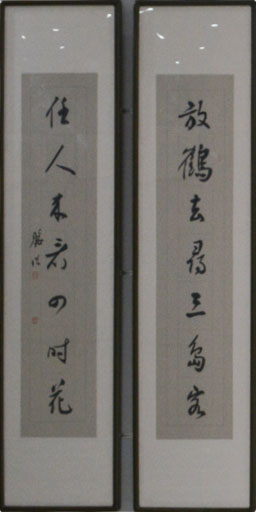 放鶴去尋三島客
任人来看四时花